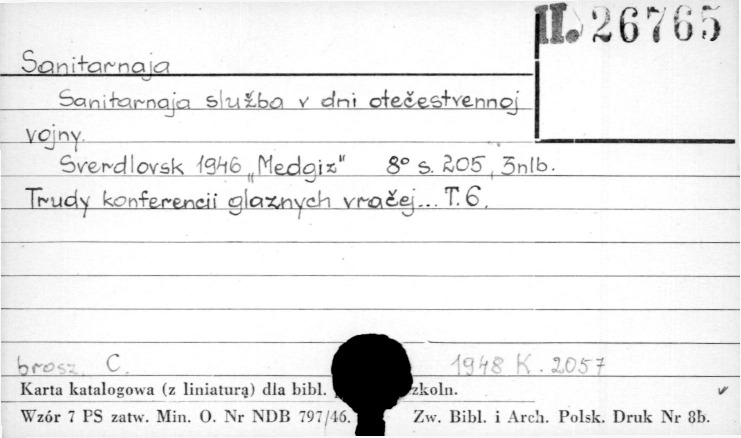 II. 26765
Sanitarnaja
Sanitarnaja služba v dni otečestvennoj
vojny.
Sverdlovsk 1946 „Medgiz" 8° s. 205, 3nlb.
Trudy konferencii glaznych vračej... T. 6.
brosz. C. 1948 K. 2057
Karta katalogowa (z liniaturą) dla bibl. zkoln.
Wzór 7 PS zatw. Min. O. Nr NDB 797/46. Zw. Bibl. i Arch. Polsk. Druk Nr 8b.